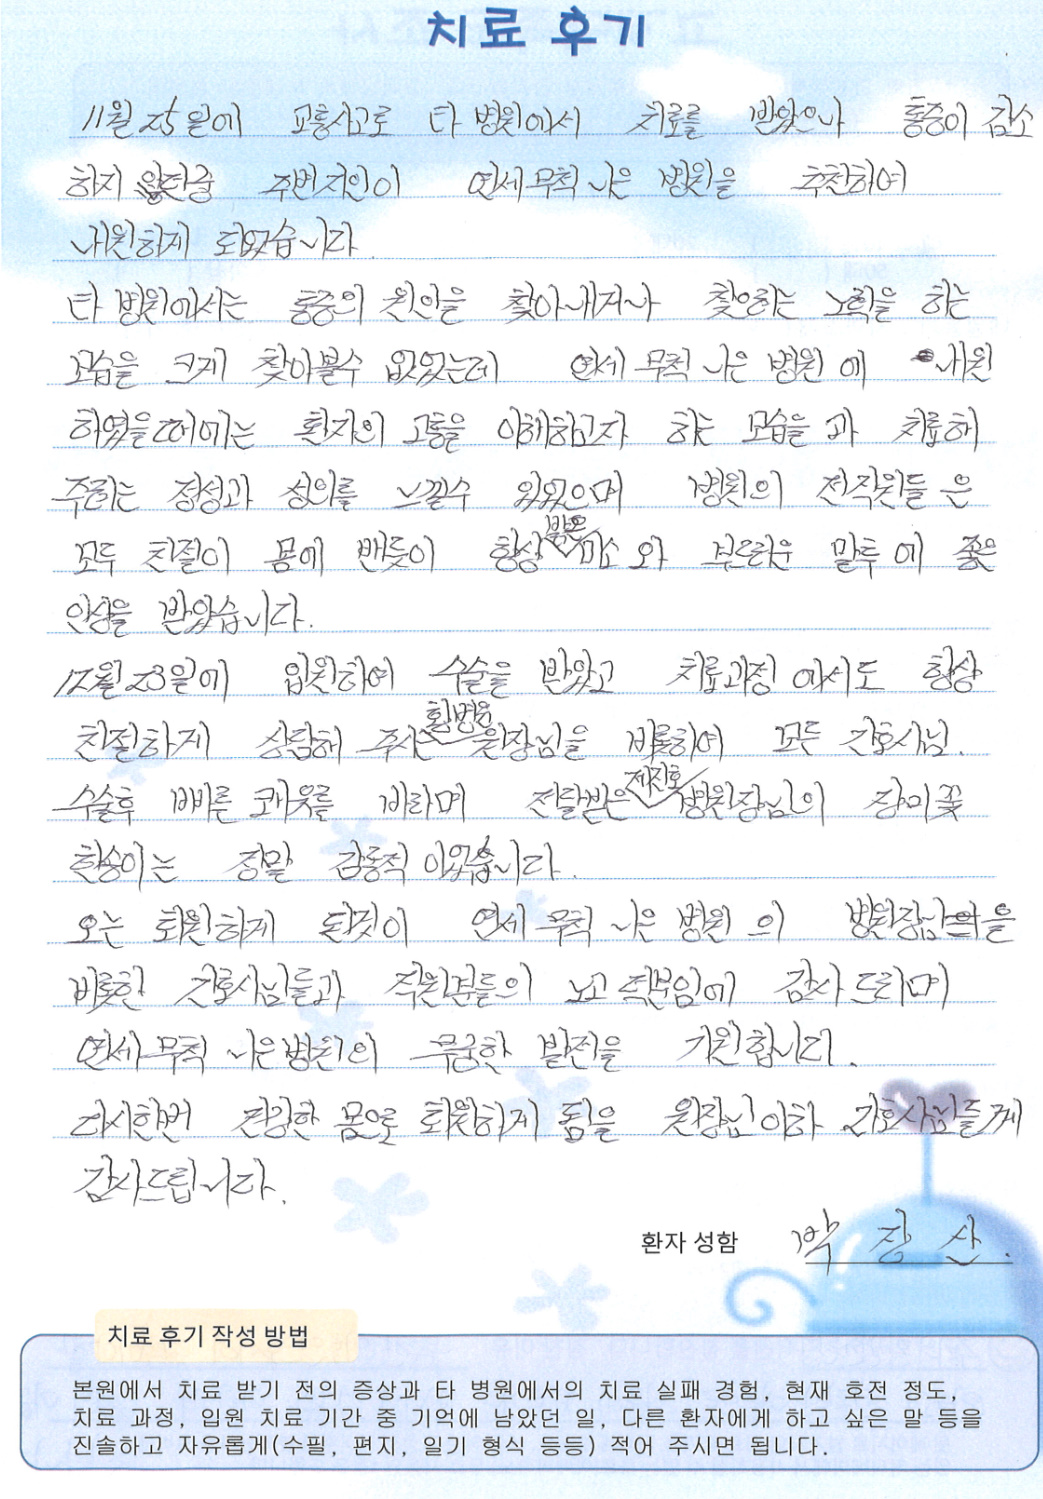 치료 후기
11월 25일에 교통사고로 타 병원에서 치료를 받았으나 통증이 감소
하지 않던중 주변지인이 연세무척 나은 병원을 추천하여
내원하게 되었습니다.
타 병원에서는 통증의 원인을 찾아내거나 찾으려는 노력을 하는
모습을 크게 찾아볼수 없었는데 연세 무척 나은 병원 에 내원
하였을때에는 환자의 고통을 이해하고자 하는 모습을 과 치료해
주려는 정성과 성의를 느낄수 있었으며 병원의 전직원들 은
모두 친절이 몸에 밴듯이 항상 밝은 미소 와 부드러운 말투 에 좋은
인상을 받았습니다.
12월 23일에 입원하여 수술을 받았고 치료과정 에서도 항상
친절하게 상담해 주시는 황병욱 원장님을 비롯하여 모든 간호사님.
수술후 빠른 쾌유를 바라며 전달받은 제진호 병원장님의 장미꽃
한송이는 정말 감동적 이었습니다.
오는 퇴원하게 된것이 연세 무척 나은 병원 의 병원장님을
비롯한 간호사님들과 직원분들의 노고 덕분임에 감사 드리며
연세무척 나은병원의 무궁한 발전을 기원합니다.
다시한번 건강한 몸으로 퇴원하게 됨을 원장님이하 간호사님들게
감사드립니다.
환자 성함 박 장 산.
치료 후기 작성 방법
본원에서 치료 받기 전의 증상과 타 병원에서의 치료 실패 경험, 현재 호전 정도,
치료 과정, 입원 치료 기간 중 기억에 남았던 일, 다른 환자에게 하고 싶은 말 등을
진솔하고 자유롭게(수필, 편지, 일기 형식 등등) 적어 주시면 됩니다.